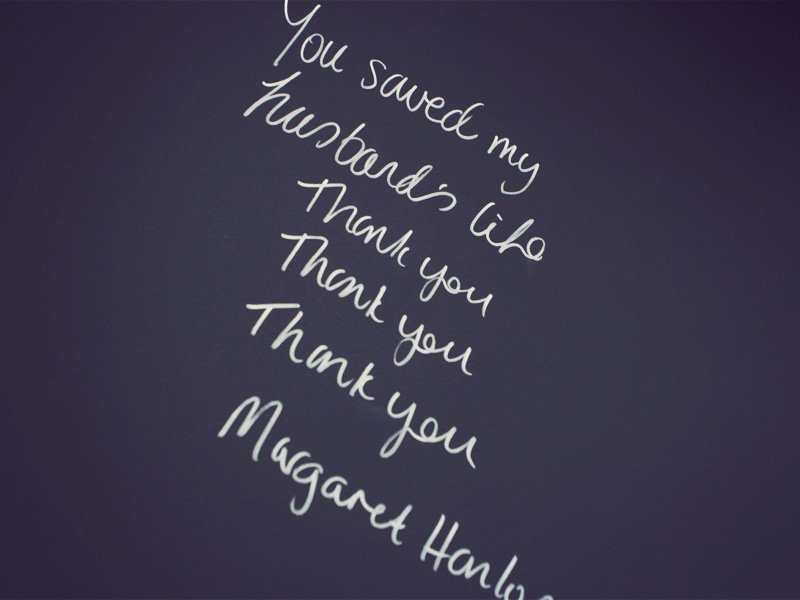 You saved my
husband's life
Thank you
Thank you
Thank you
Margaret